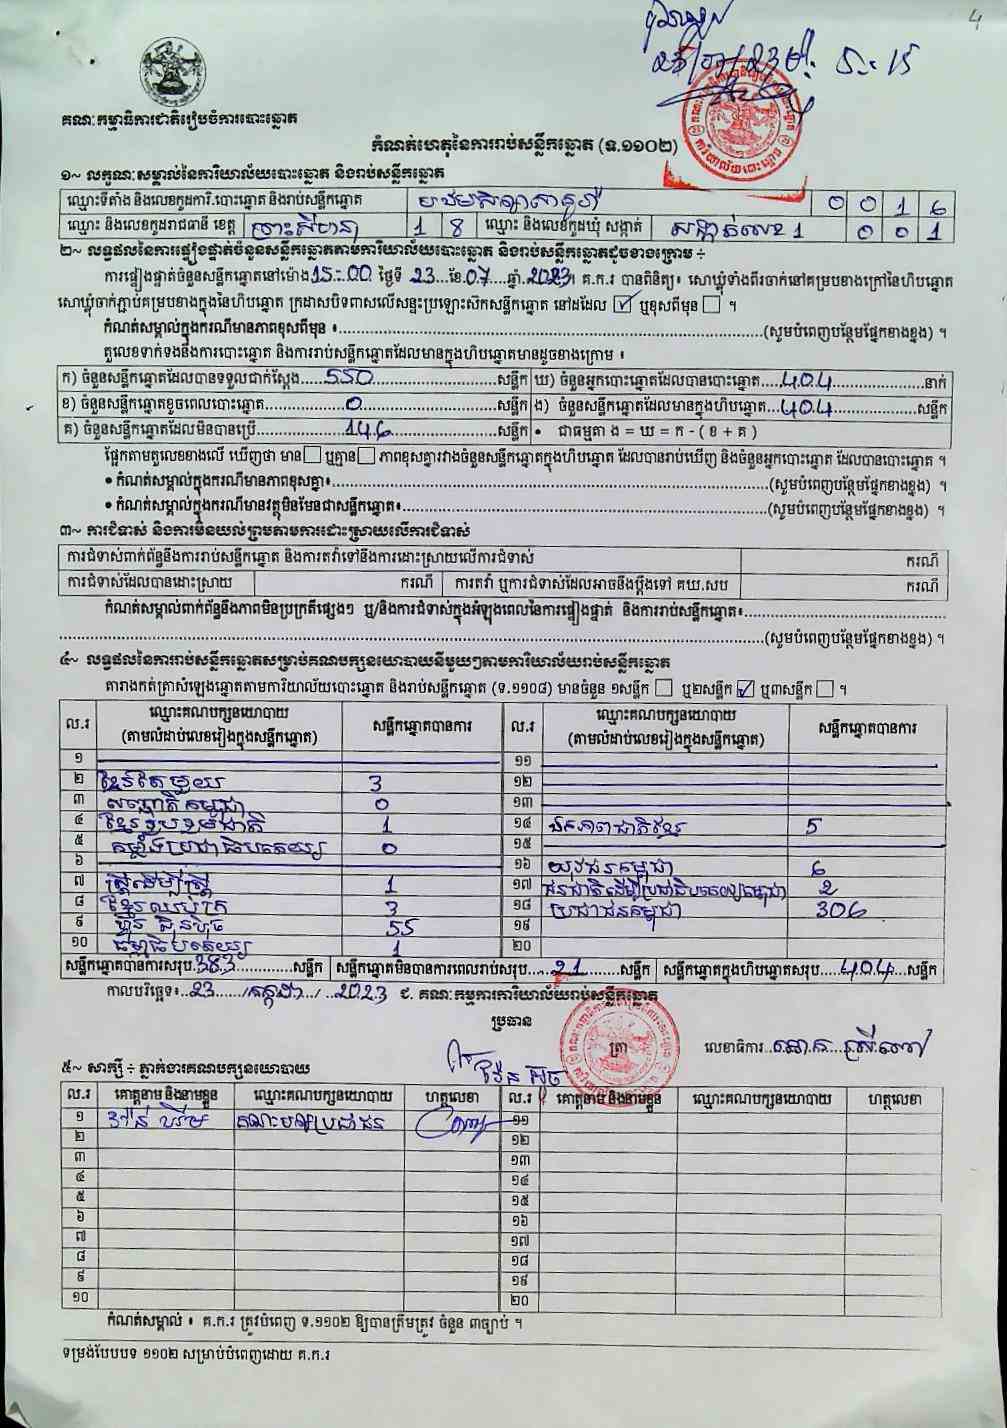 4
គណៈកម្មាធិការជាតិរៀបចំការបោះឆ្នោត
កំណត់ហេតុនៃការរាប់សន្លឹកឆ្នោត (ទ.១១០២)
១~ លក្ខណៈសម្គាល់នៃការិយាល័យបោះឆ្នោត និងរាប់សន្លឹកឆ្នោត
ឈ្មោះទីតាំង និងលេខកូដការិ.បោះឆ្នោត និងរាប់សន្លឹកឆ្នោត 0 0 1 6
ឈ្មោះ និងលេខកូដរាជធានី ខេត្ត ព្រះសីហនុ 1 8 ឈ្មោះ និងលេខកូដឃុំ សង្កាត់ សង្កាត់លេខ 1 0 0 1
២~ លទ្ធផលនៃការផ្ទៀងផ្ទាត់ចំនួនសន្លឹកឆ្នោតតាមការិយាល័យបោះឆ្នោត និងរាប់សន្លឹកឆ្នោតដូចខាងក្រោម ៖
ការផ្ទៀងផ្ទាត់ចំនួនសន្លឹកឆ្នោតនៅម៉ោង 15:00 ថ្ងៃទី 23 ខែ 07 ឆ្នាំ 2023។ គ.ក.រ បានពិនិត្យ៖ សោឃ្លុំទាំងពីរចាក់នៅគម្របខាងក្រៅនៃហិបឆ្នោត
សោឃ្លុំចាក់ភ្ជាប់គម្របខាងក្នុងនៃហិបឆ្នោត ក្រដាសបិទពាសលើសន្ទះប្រឡោះសិកសន្លឹកឆ្នោត នៅដដែល ☑ ឬខុសពីមុន ☐ ។
កំណត់សម្គាល់ក្នុងករណីមានភាពខុសពីមុន ៖ (សូមបំពេញបន្ថែមផ្នែកខាងខ្នង) ។
តួលេខទាក់ទងនឹងការបោះឆ្នោត និងការរាប់សន្លឹកឆ្នោតដែលមានក្នុងហិបឆ្នោតមានដូចខាងក្រោម ៖
ក) ចំនួនសន្លឹកឆ្នោតដែលបានទទួលជាក់ស្តែង 550 សន្លឹក ឃ) ចំនួនអ្នកបោះឆ្នោតដែលបានបោះឆ្នោត 404 នាក់
ខ) ចំនួនសន្លឹកឆ្នោតខូចពេលបោះឆ្នោត 0 សន្លឹក ង) ចំនួនសន្លឹកឆ្នោតដែលមានក្នុងហិបឆ្នោត 404 សន្លឹក
គ) ចំនួនសន្លឹកឆ្នោតដែលមិនបានប្រើ 146 សន្លឹក • ជាធម្មតា ង = ឃ = ក - ( ខ + គ )
ផ្អែកតាមតួលេខខាងលើ ឃើញថា មាន ☐ ឬគ្មាន ☐ ភាពខុសគ្នារវាងចំនួនសន្លឹកឆ្នោតក្នុងហិបឆ្នោត ដែលបានរាប់ឃើញ និងចំនួនអ្នកបោះឆ្នោត ដែលបានបោះឆ្នោត ។
• កំណត់សម្គាល់ក្នុងករណីមានភាពខុសគ្នា៖ (សូមបំពេញបន្ថែមផ្នែកខាងខ្នង) ។
• កំណត់សម្គាល់ក្នុងករណីមានវត្ថុមិនមែនជាសន្លឹកឆ្នោត៖ (សូមបំពេញបន្ថែមផ្នែកខាងខ្នង) ។
៣~ ការជំទាស់ និងការមិនយល់ព្រមតាមការដោះស្រាយលើការជំទាស់
ការជំទាស់ពាក់ព័ន្ធនឹងការរាប់សន្លឹកឆ្នោត និងការតវ៉ាទៅនឹងការដោះស្រាយលើការជំទាស់ ករណី
ការជំទាស់ដែលបានដោះស្រាយ ករណី ការតវ៉ា ឬការជំទាស់ដែលអាចនឹងប្តឹងទៅ គឃ.សប ករណី
កំណត់សម្គាល់ពាក់ព័ន្ធនឹងភាពមិនប្រក្រតីផ្សេងៗ ឬ/និងការជំទាស់ក្នុងអំឡុងពេលនៃការផ្ទៀងផ្ទាត់ និងការរាប់សន្លឹកឆ្នោត៖
(សូមបំពេញបន្ថែមផ្នែកខាងខ្នង) ។
៤~ លទ្ធផលនៃការរាប់សន្លឹកឆ្នោតសម្រាប់គណបក្សនយោបាយនីមួយៗតាមការិយាល័យរាប់សន្លឹកឆ្នោត
តារាងកត់ត្រាសំឡេងឆ្នោតតាមការិយាល័យបោះឆ្នោត និងរាប់សន្លឹកឆ្នោត (ទ.១១០៨) មានចំនួន ១សន្លឹក ☐ ឬ២សន្លឹក ☑ ឬ៣សន្លឹក ☐ ។
ល.រ ឈ្មោះគណបក្សនយោបាយ (តាមលំដាប់លេខរៀងក្នុងសន្លឹកឆ្នោត) សន្លឹកឆ្នោតបានការ ល.រ ឈ្មោះគណបក្សនយោបាយ (តាមលំដាប់លេខរៀងក្នុងសន្លឹកឆ្នោត) សន្លឹកឆ្នោតបានការ
១ ១១
២ ខ្មែរតែមួយ 3 ១២
៣ សញ្ជាតិកម្ពុជា 0 ១៣
៤ ខ្មែររួបរួមជាតិ 1 ១៤ ឯកភាពជាតិខ្មែរ 5
៥ កម្លាំងប្រជាធិបតេយ្យ 0 ១៥
៦ ១៦ យុវជនកម្ពុជា 6
៧ ស្ត្រីដើម្បីស្ត្រី 1 ១៧ ជនជាតិដើមប្រជាធិបតេយ្យកម្ពុជា 2
៨ ខ្មែរឈប់ក្រ 3 ១៨ ប្រជាជនកម្ពុជា 306
៩ ហ៊្វុនស៊ិនប៉ិច 55 ១៩
១០ ធម្មាធិបតេយ្យ 1 ២០
សន្លឹកឆ្នោតបានការសរុប 383 សន្លឹក សន្លឹកឆ្នោតមិនបានការពេលរាប់សរុប 21 សន្លឹក សន្លឹកឆ្នោតក្នុងហិបឆ្នោតសរុប 404 សន្លឹក
កាលបរិច្ឆេទ៖ 23 / កក្កដា / 2023 ជ. គណៈកម្មការការិយាល័យរាប់សន្លឹកឆ្នោត
ប្រធាន
ត្រា
លេខាធិការ
៥~ សាក្សី ៖ ភ្នាក់ងារគណបក្សនយោបាយ
ល.រ គោត្តនាម និងនាមខ្លួន ឈ្មោះគណបក្សនយោបាយ ហត្ថលេខា ល.រ គោត្តនាម និងនាមខ្លួន ឈ្មោះគណបក្សនយោបាយ ហត្ថលេខា
១ គណបក្សប្រជាជន ១១
២ ១២
៣ ១៣
៤ ១៤
៥ ១៥
៦ ១៦
៧ ១៧
៨ ១៨
៩ ១៩
១០ ២០
កំណត់សម្គាល់ ៖ គ.ក.រ ត្រូវបំពេញ ទ.១១០២ ឱ្យបានត្រឹមត្រូវ ចំនួន ៣ច្បាប់ ។
ទម្រង់បែបបទ ១១០២ សម្រាប់បំពេញដោយ គ.ក.រ